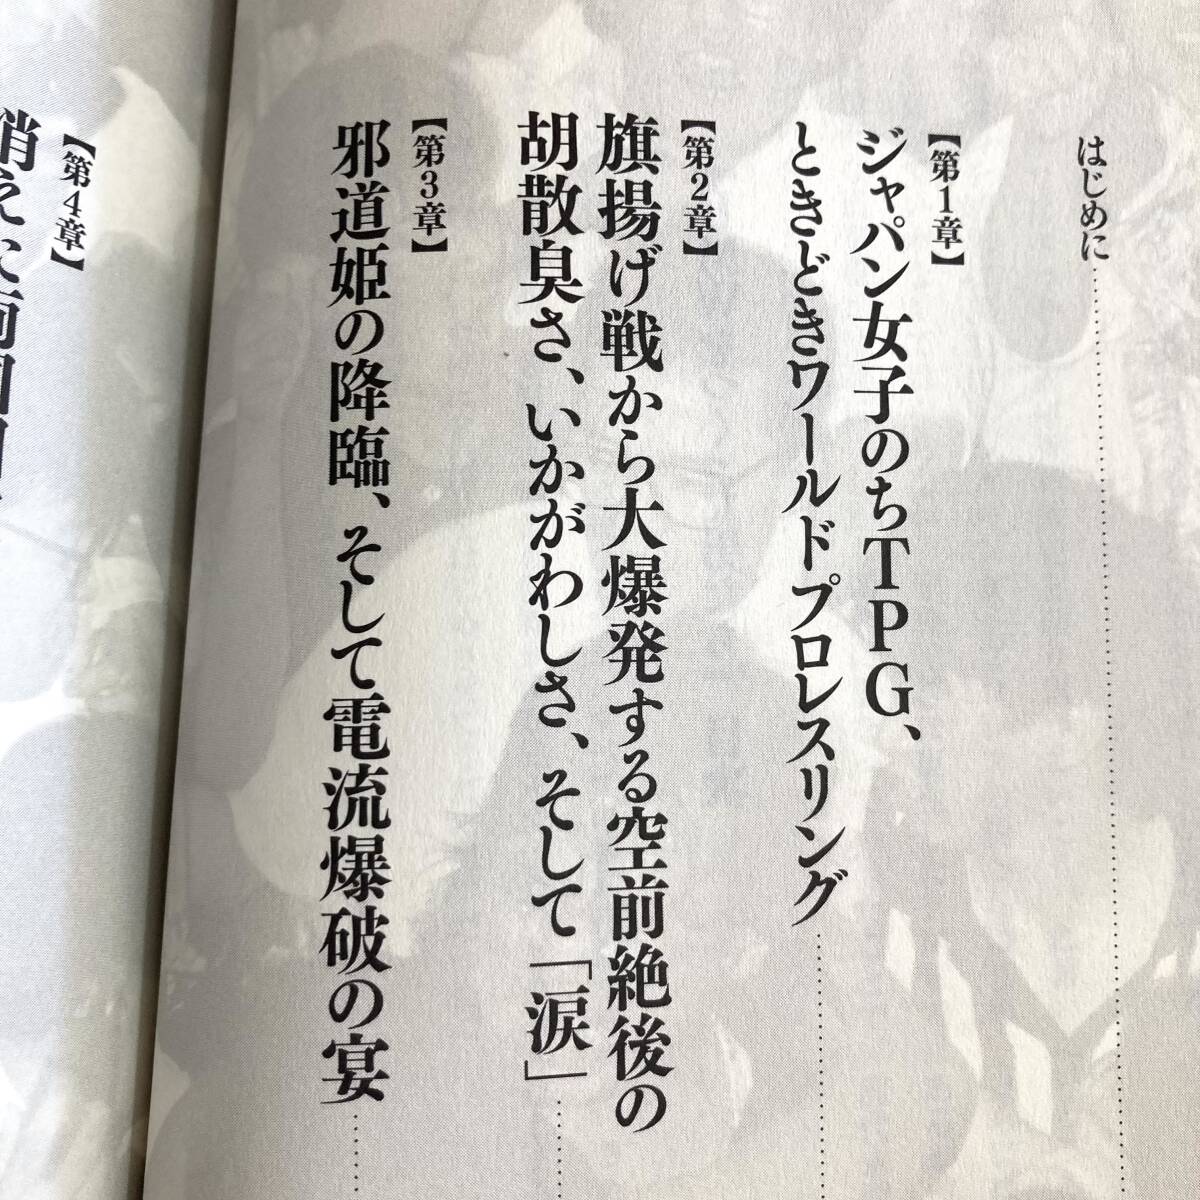 はじめに
【第1章】
ジャパン女子のちTPG、
ときどきワールドプロレスリング
【第2章】
旗揚げ戦から大爆発する空前絶後の
胡散臭さ、いかがわしさ、そして「涙」
【第3章】
邪道姫の降臨、そして電流爆破の宴
【第4章】
消えた